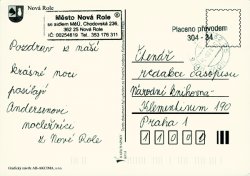 Nová Role
Město Nová Role
se sídlem MěÚ, Chodovská 236
362 25 Nová Role
IČ: 00254819 Tel. 353 176 311
Placeno převodem
304 - 24
Pozdrav z naší
krásné noci
posílají
Andersenovi
nocležníci
z Nové Role
Čtenář
redakce časopisu
Národní knihovna
Klementinum 190
Praha 1
11000